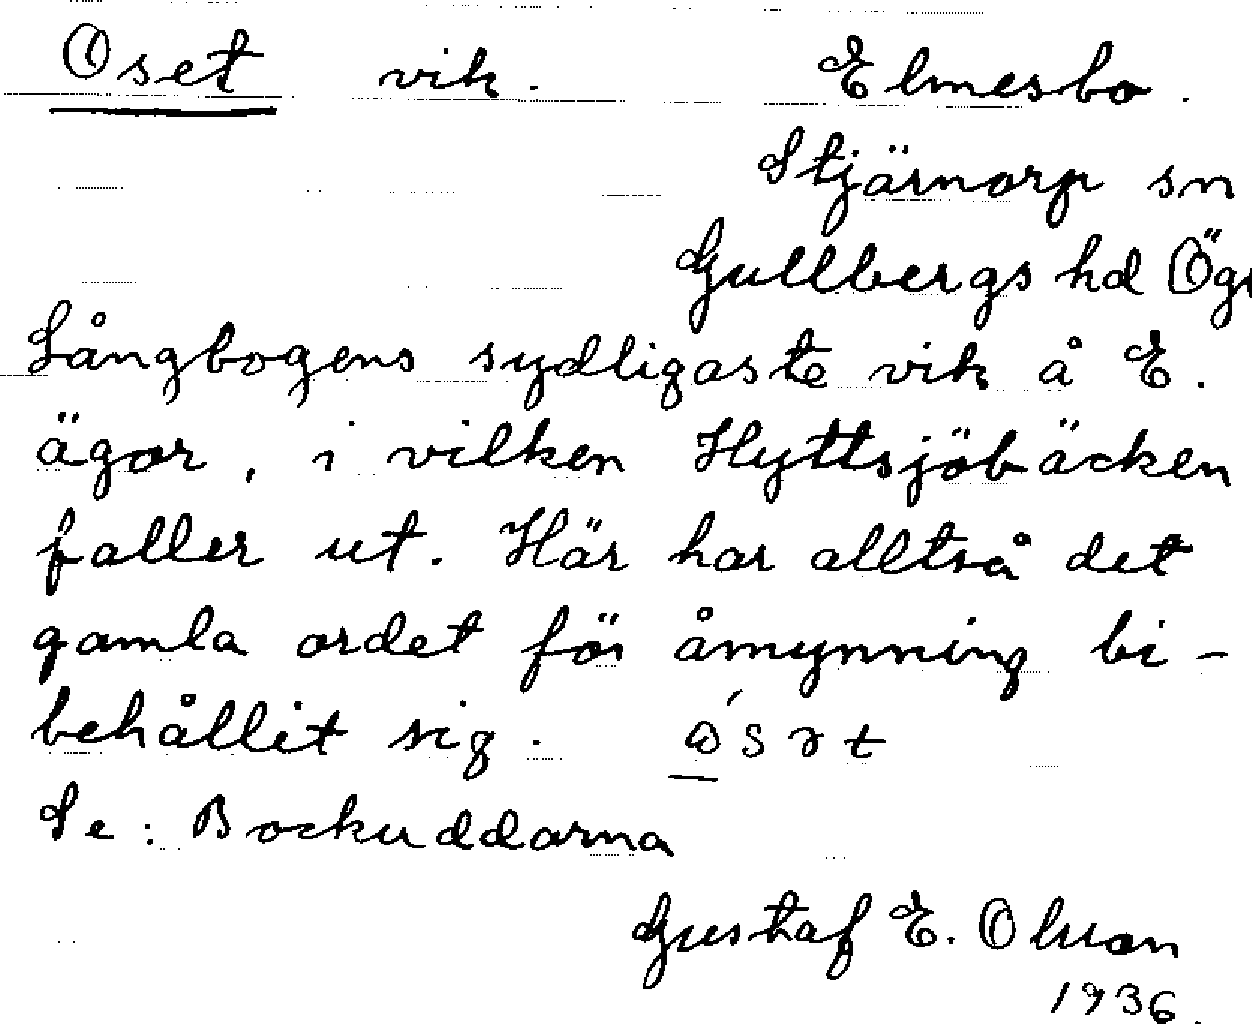 Oset vik. Elmesbo.
Stjärnorp sn
Gullbergs hd Ögl
Långbogens sydligaste vik å E.
ägor, i vilken Hyttsjöbäcken
faller ut. Här har alltså det
gamla ordet för åmynning bi-
behållit sig.
Se: Bockuddarna
Gustaf E. Olsson
1936.